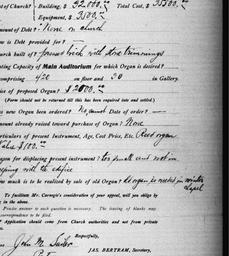 of Church? Building, $ 32000.00 Total Cost, $ 35500.00
Equipment, $ 3500.00
mount of Debt? None on church
w is Debt provided for?
urch built of? pressed brick with stone trimmings
ting Capacity of Main Auditorium for which Organ is desired?
mprising 420 on floor and 30 in Gallery.
ice of proposed Organ? $2000.00
(Form should not be returned till this has been required into and settled.)
s new Organ been ordered? No Date of order?
mount already raised toward purchase of Organ? None
rticulars of present Instrument, Age, Cost Price, Etc. Reed organ
Value $100.00
ason for displacing present instrument? too small and not in
eping with the edifice
ow much is to be realized by sale of old Organ? organ needed in
chapel
To facilitate Mr. Carnegie's consideration of your appeal, will you oblige by
in the above.
Precise answer to each question is necessary. The leaving of blanks may
correspondence to be filed.
Application should come from Church authorities and not from private
Respectfully,
John M.
JAS. BERTRAM, Secretary,